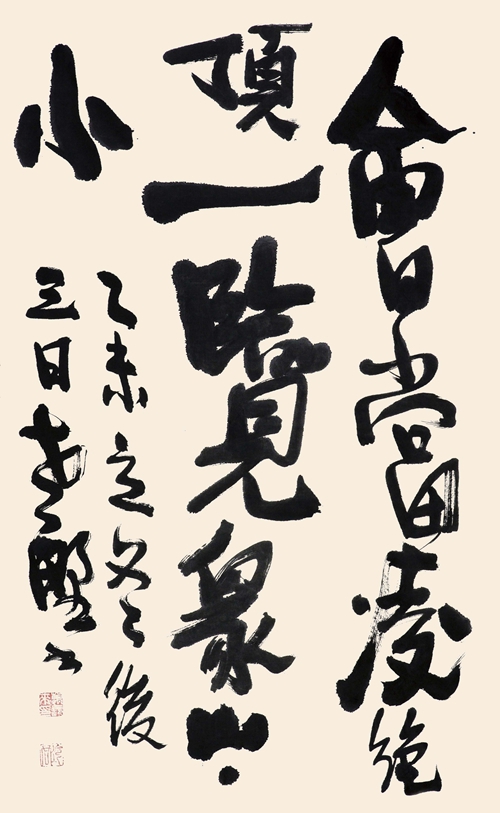 會當凌絕
頂一覽衆山
小
乙未立冬後
三日